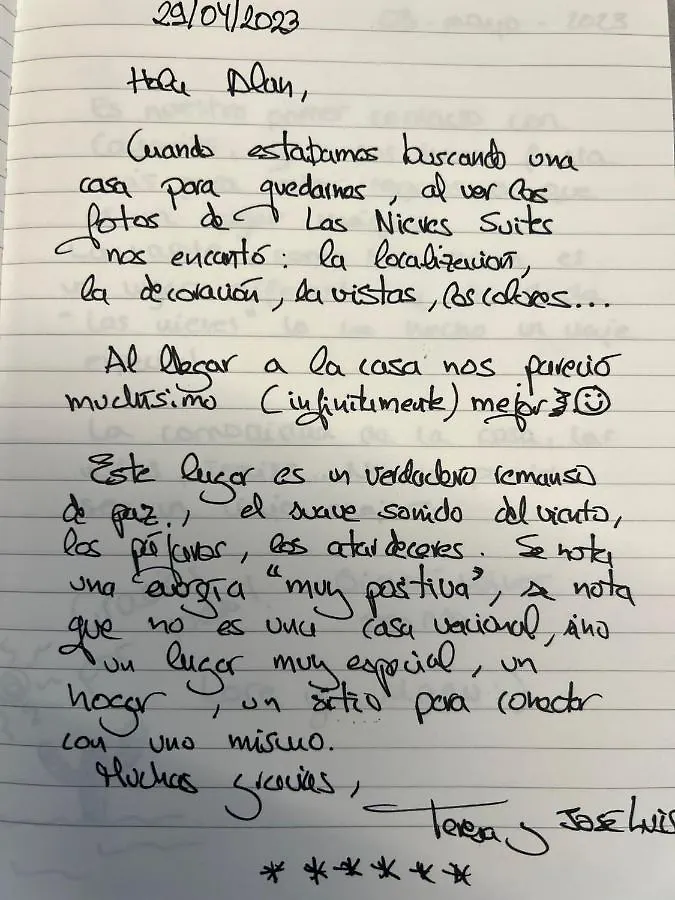 29/04/2023
Hola Alan,
Cuando estabamos buscando una
casa para quedarnos, al ver las
fotos de Las Nieves Suites
nos encantó: la localización,
la decoración, la vistas, los colores...
Al llegar a la casa nos pareció
muchísimo (infinitamente) mejor ☺
Este lugar es un verdadero remanso
de paz., el suave sonido del viento,
los pájaros, los atardeceres. Se nota
una energía "muy positiva", se nota
que no es una casa vacional, sino
un lugar muy especial, un
hogar, un sitio para conectar
con uno mismo.
Muchas gracias,
Teresa y JOSE LUIS
* * * * * *